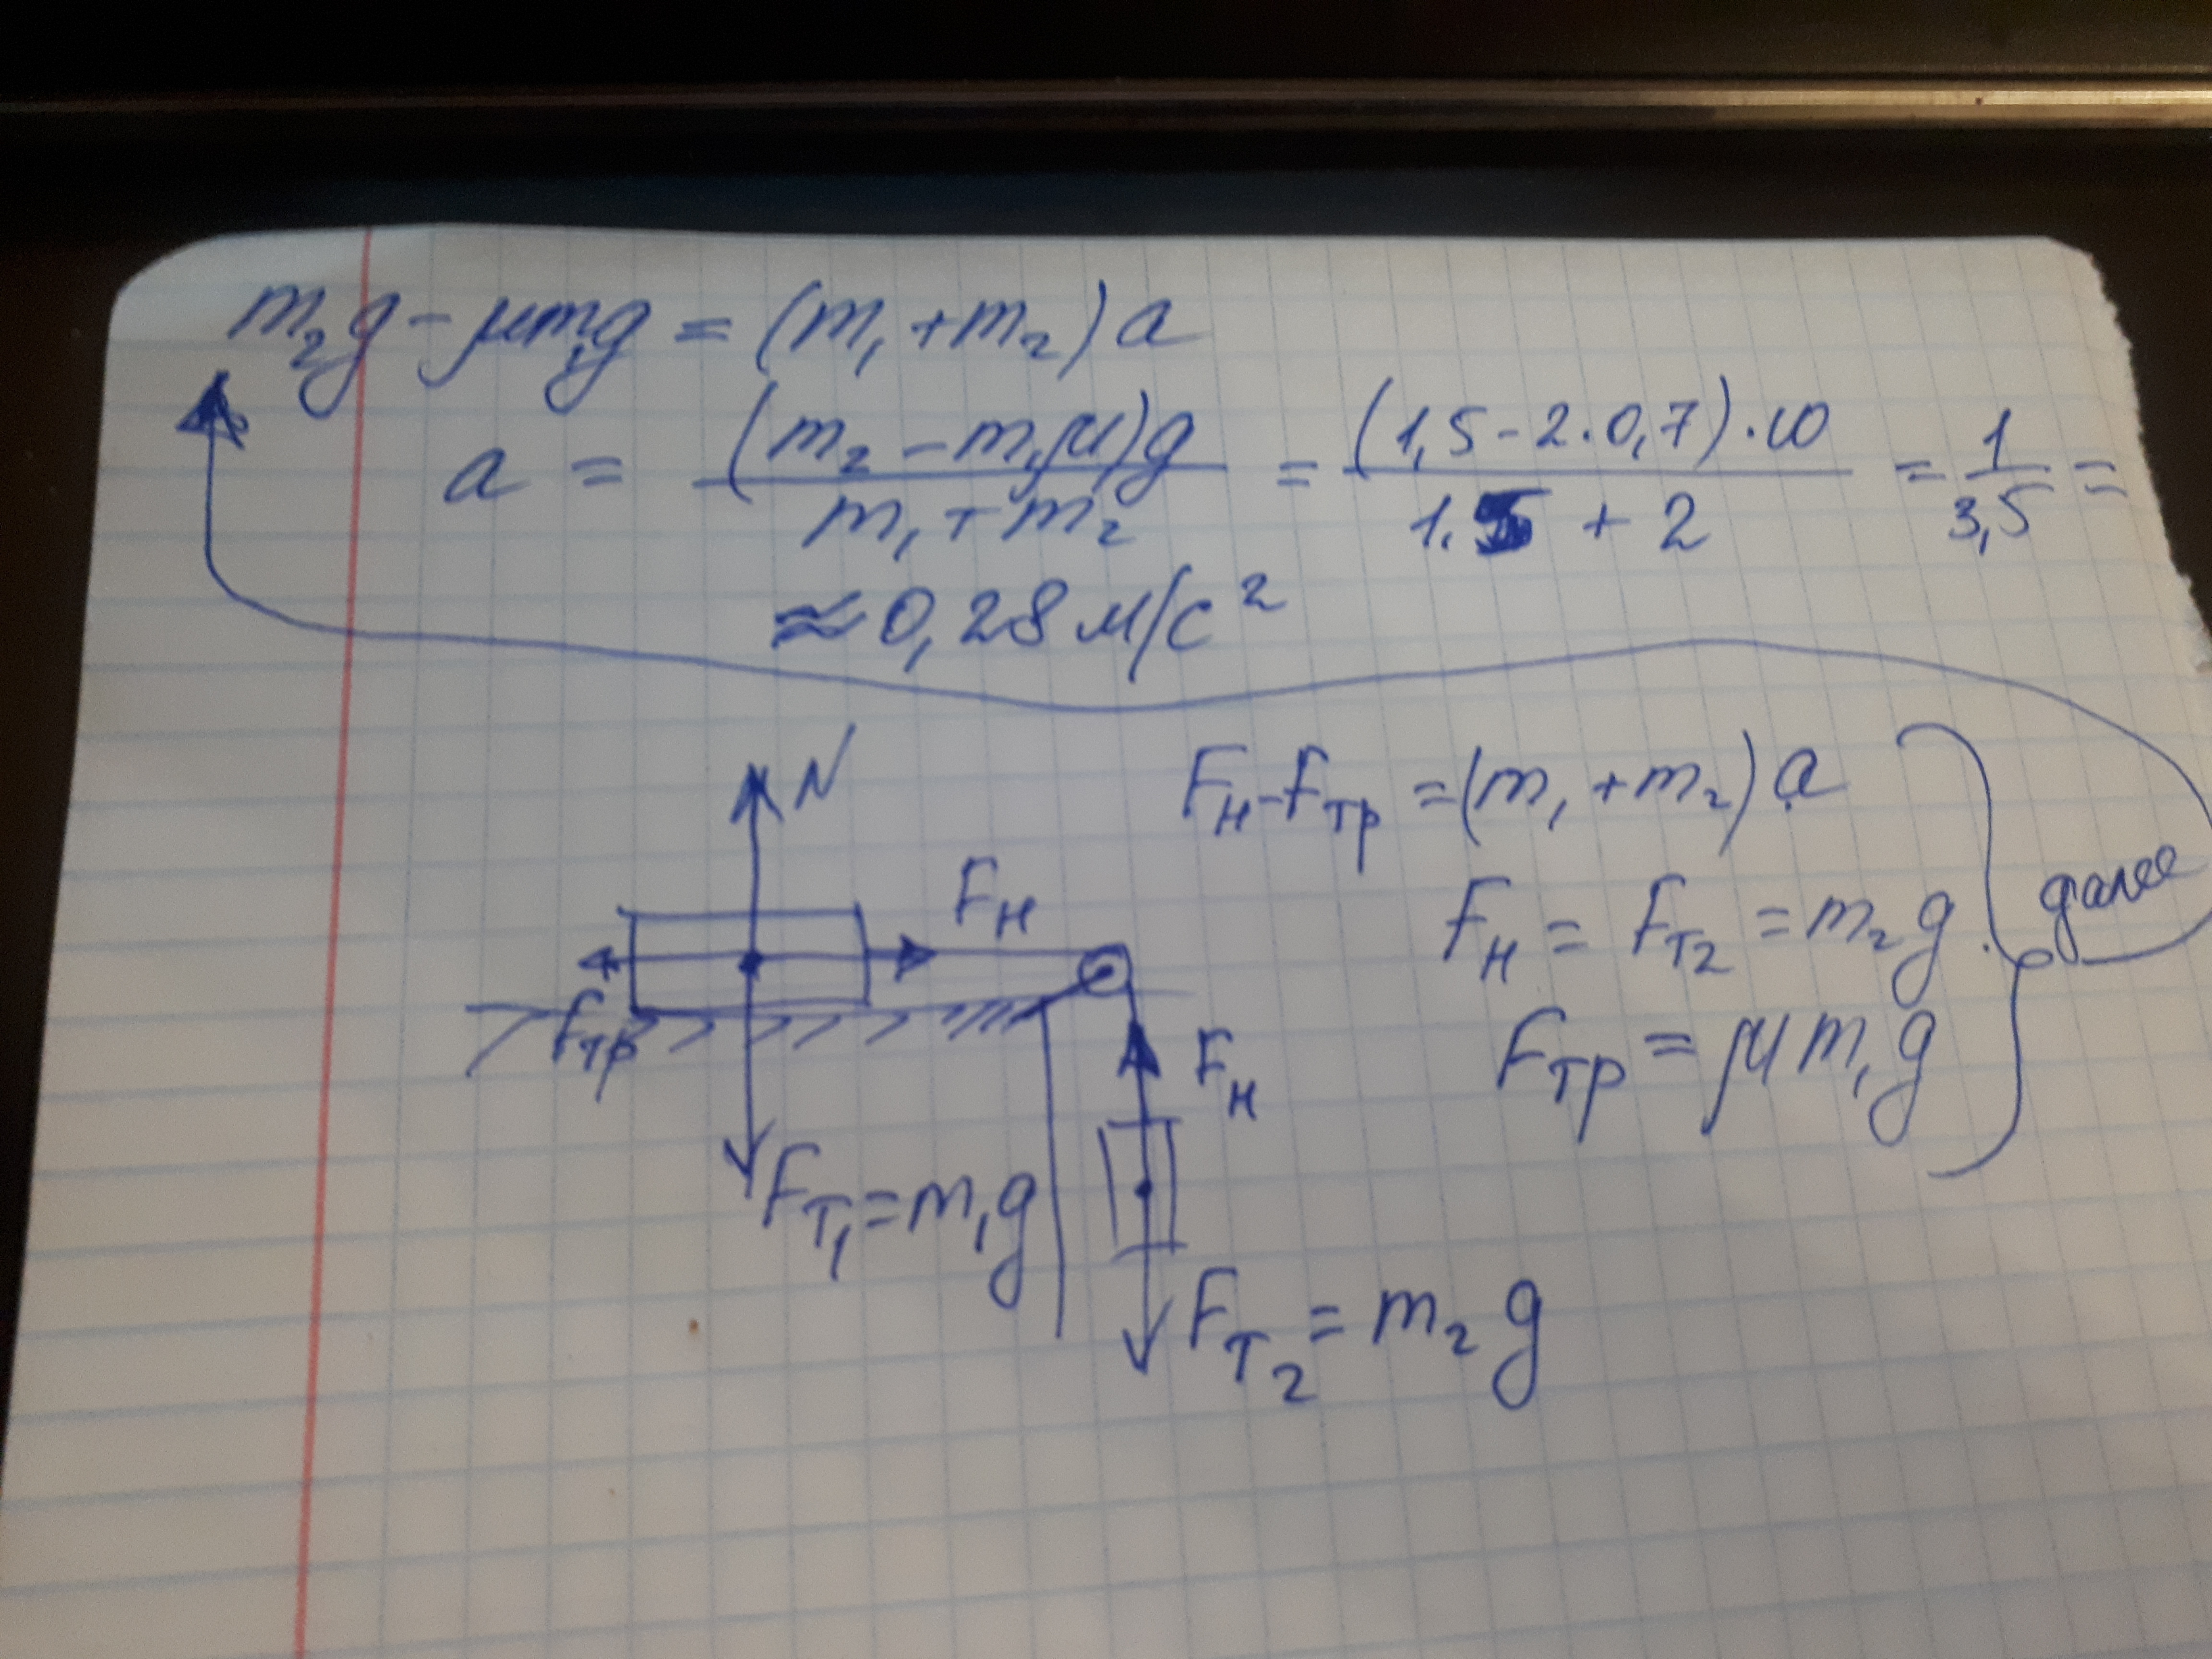 m₂g - μm₁g = (m₁ + m₂) a
a = (m₂ - m₁μ)g / m₁ + m₂ = (1,5 - 2·0,7)·10 / 1.5 + 2 = 1 / 3,5 =
≈ 0,28 м/с²
N
Fн
Fтр
Fт₁ = m₁g
Fн
Fт₂ = m₂g
Fн - Fтр = (m₁ + m₂) a
Fн = Fт₂ = m₂g
Fтр = μm₁g
далее